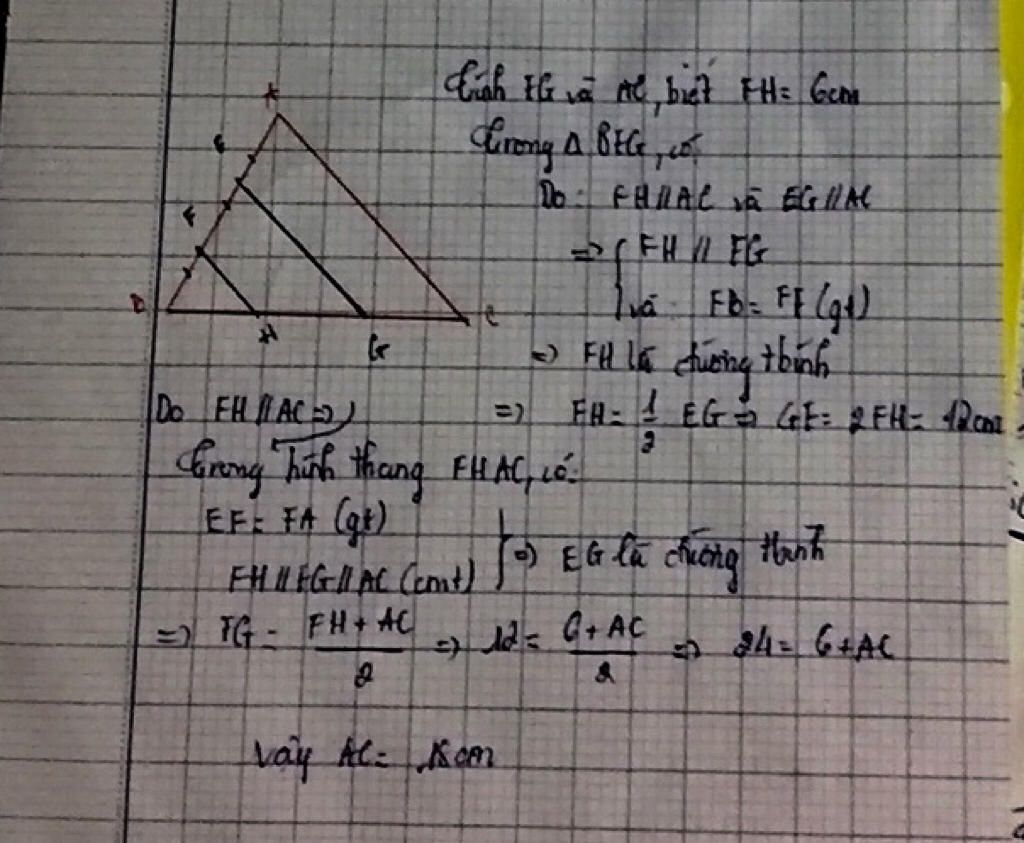 A
E
F
B
H
G
C
Tính EG và AC, biết FH = 6cm
Trong Δ BEG, có
Do: FH // AC và EG // AC
=> { FH // EG
và FB = FE (gt)
=> FH là đường tbình
=> FH = 1/2 EG => GE = 2FH = 12cm
Do FH // AC =>
Trong hình thang FHAC, có:
EF = EA (gt)
FH // EG // AC (cmt) } => EG là đường tbình
=> EG = (FH + AC)/2 => 12 = (6 + AC)/2 => 24 = 6 + AC
Vậy AC = 18cm